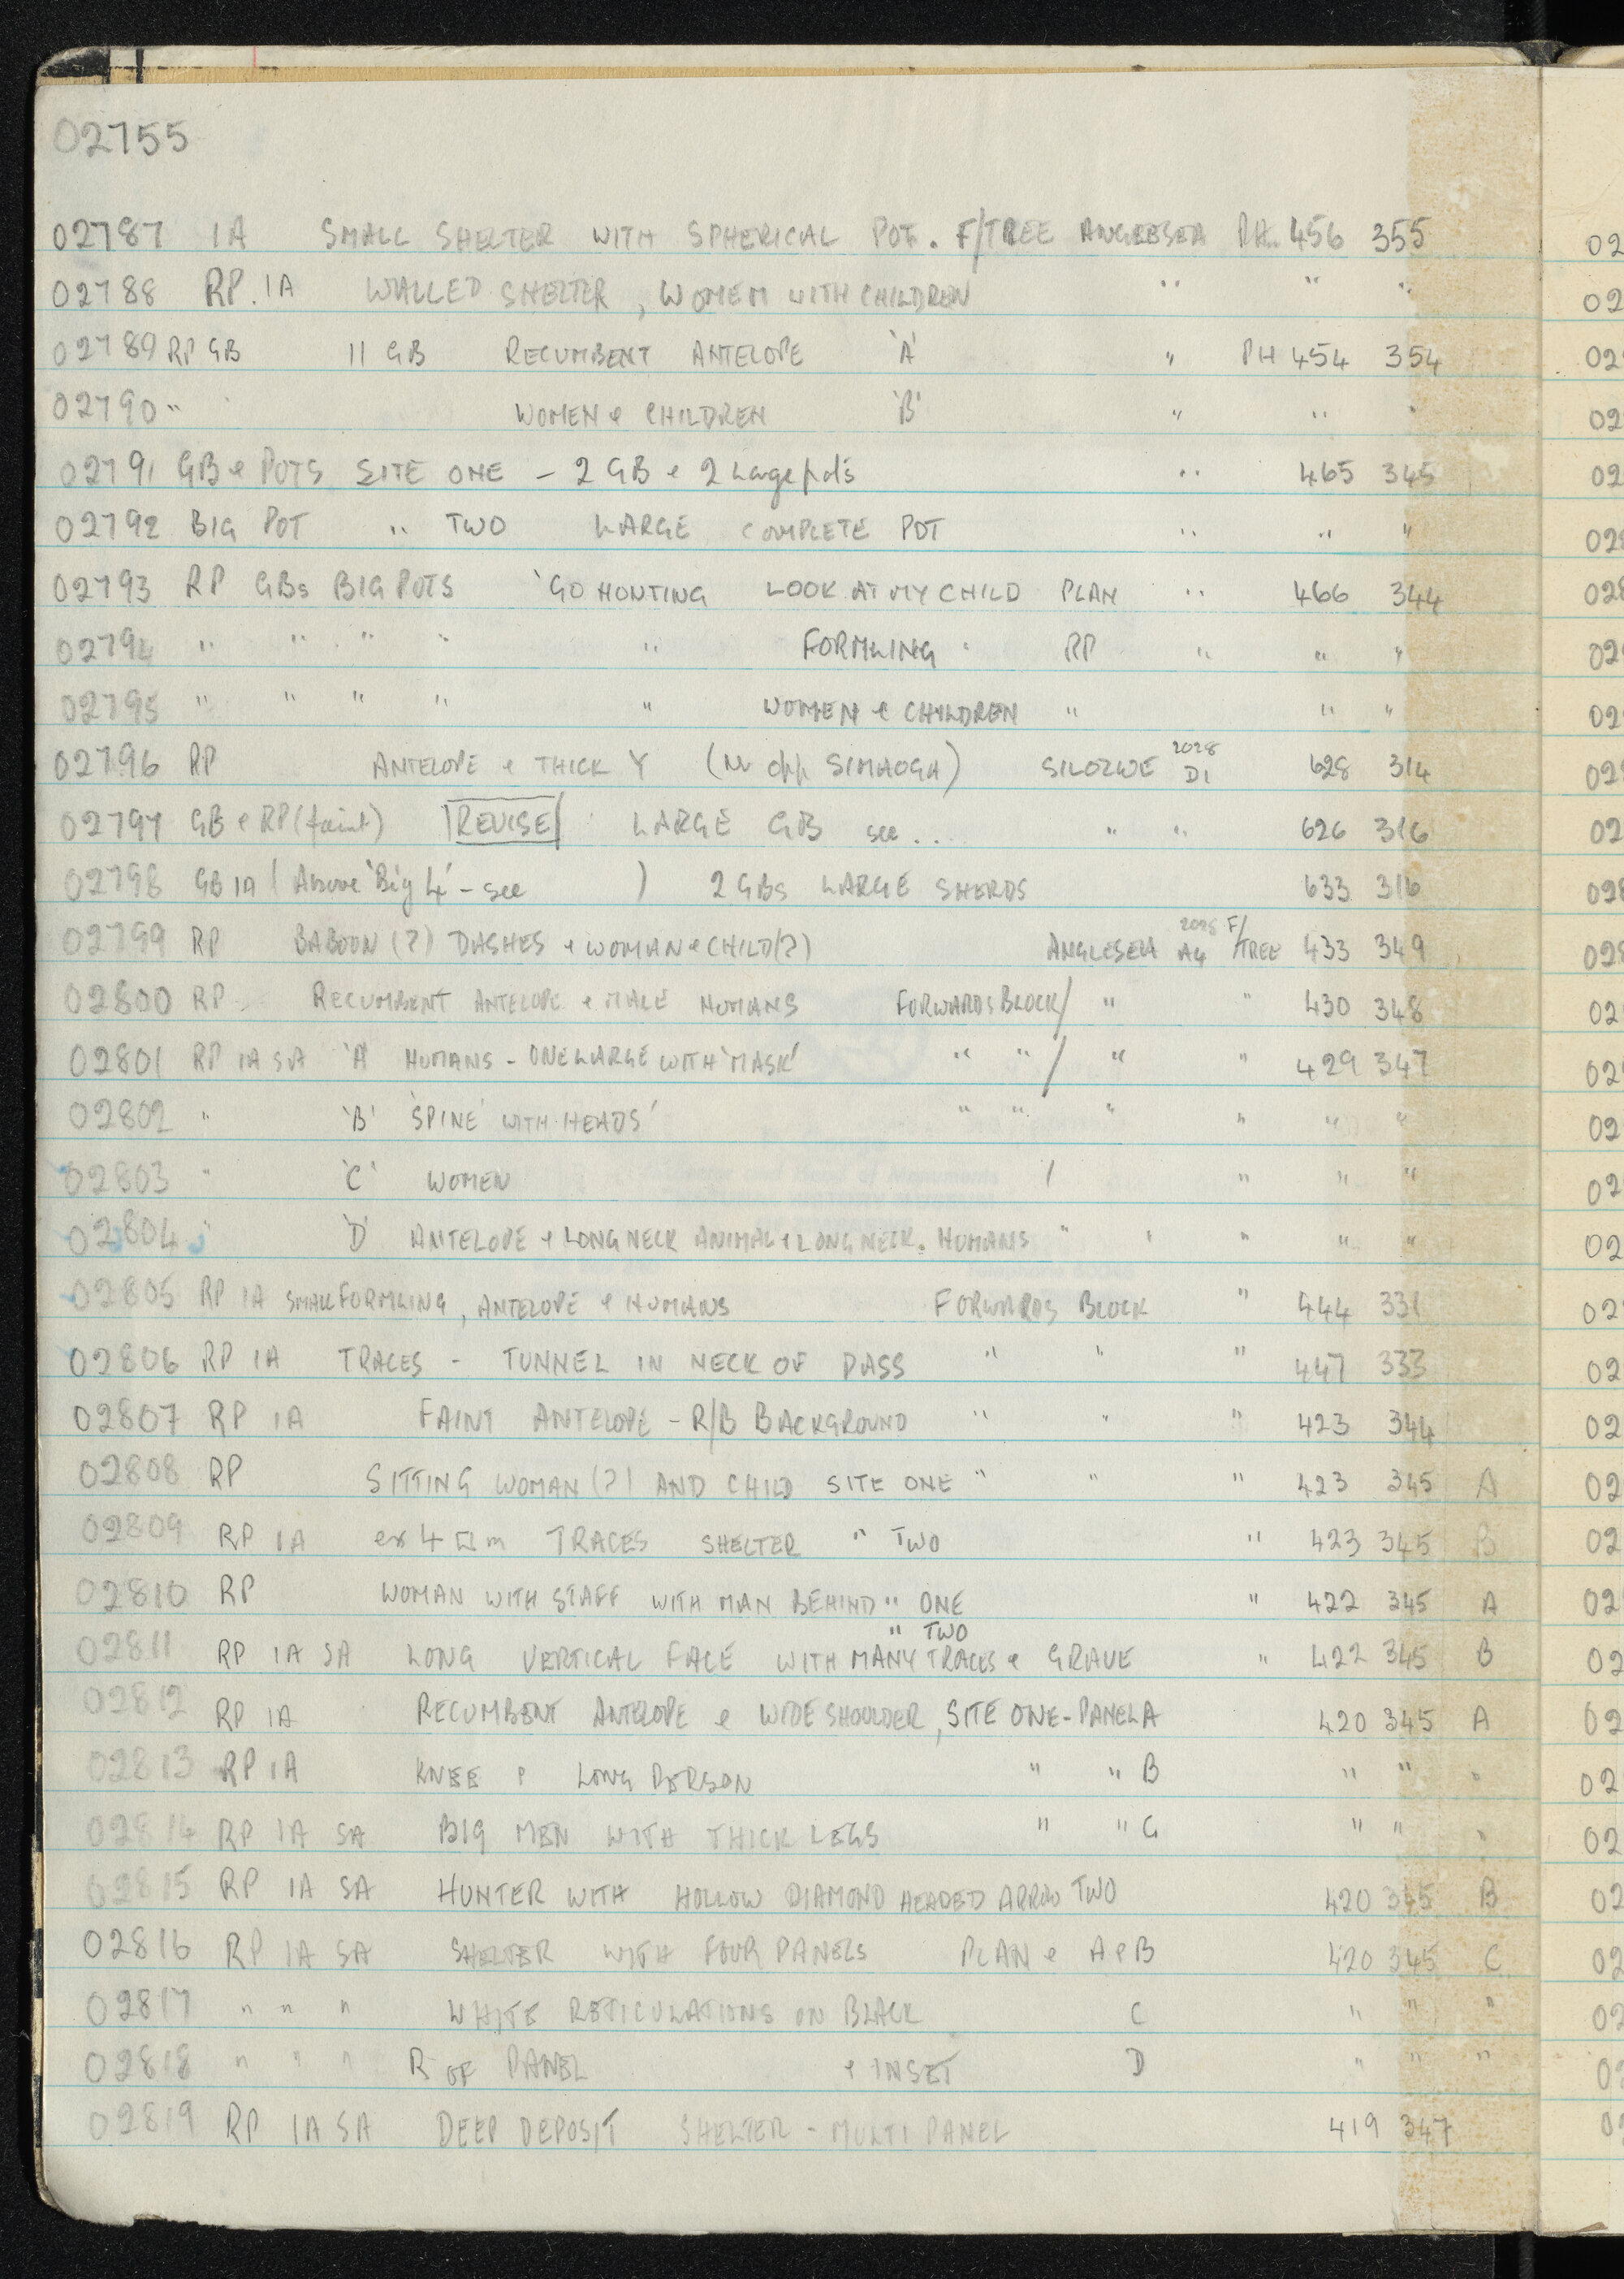 02755
02787 IA SMALL SHELTER WITH SPHERICAL POT. F/TREE ANGLESEA PH. 456 355
02788 RP. IA WALLED SHELTER, WOMEN WITH CHILDREN " " "
02789 RP GB II GB RECUMBENT ANTELOPE 'A' " PH 454 354
02790 " WOMEN & CHILDREN 'B' " " "
02791 GB & POTS SITE ONE - 2 GB & 2 Large pots " 465 345
02792 BIG POT " TWO LARGE COMPLETE POT " " "
02793 RP GBs BIG POTS 'GO HUNTING LOOK AT MY CHILD PLAN " 466 344
02794 " " " " " FORMLING " RP " " "
02795 " " " " " WOMEN & CHILDREN " " "
02796 RP ANTELOPE & THICK Y (N opp SIMAOGA) SILOZWE 2028 D1 628 314
02797 GB & RP (faint) REVISE LARGE GB see ... " " 626 316
02798 GB IA (Above 'Big 4' - see ) 2 GBs LARGE SHERDS 633 316
02799 RP BABOON (?) DASHES & WOMAN & CHILD (?) ANGLESEA 2028 A4 F/TREE 433 349
02800 RP RECUMBENT ANTELOPE & MALE HUMANS FORWARDS BLOCK / " " 430 348
02801 RP IA SA 'A' HUMANS - ONE LARGE WITH 'MASK' " " / " " 429 347
02802 " 'B' 'SPINE WITH HEADS' " " " " " "
02803 " 'C' WOMEN / " " "
02804 " 'D' ANTELOPE & LONG NECK ANIMAL & LONG NECK. HUMANS " " " " "
02805 RP IA SMALL FORMLING, ANTELOPE & HUMANS FORWARDS BLOCK " 444 331
02806 RP IA TRACES - TUNNEL IN NECK OF PASS " " " 447 333
02807 RP IA FAINT ANTELOPE - R/B BACKGROUND " " " 423 344
02808 RP SITTING WOMAN (?) AND CHILD SITE ONE " " " 423 345 A
02809 RP IA ex 4 □ m TRACES SHELTER " TWO " 423 345 B
02810 RP WOMAN WITH STAFF WITH MAN BEHIND " ONE " 422 345 A
" TWO
02811 RP IA SA LONG VERTICAL FACE WITH MANY TRACES & GRAVE " 422 345 B
02812 RP IA RECUMBENT ANTELOPE & WIDE SHOULDER, SITE ONE - PANEL A 420 345 A
02813 RP IA KNEE & LONG PERSON " " B " " "
02814 RP IA SA BIG MEN WITH THICK LEGS " " C " " "
02815 RP IA SA HUNTER WITH HOLLOW DIAMOND HEADED ARROW TWO 420 345 B
02816 RP IA SA SHELTER WITH FOUR PANELS PLAN & A & B 420 345 C
02817 " " " WHITE RETICULATIONS ON BLACK C " " "
02818 " " " R OF PANEL & INSET D " " "
02819 RP IA SA DEEP DEPOSIT SHELTER - MULTI PANEL 419 347